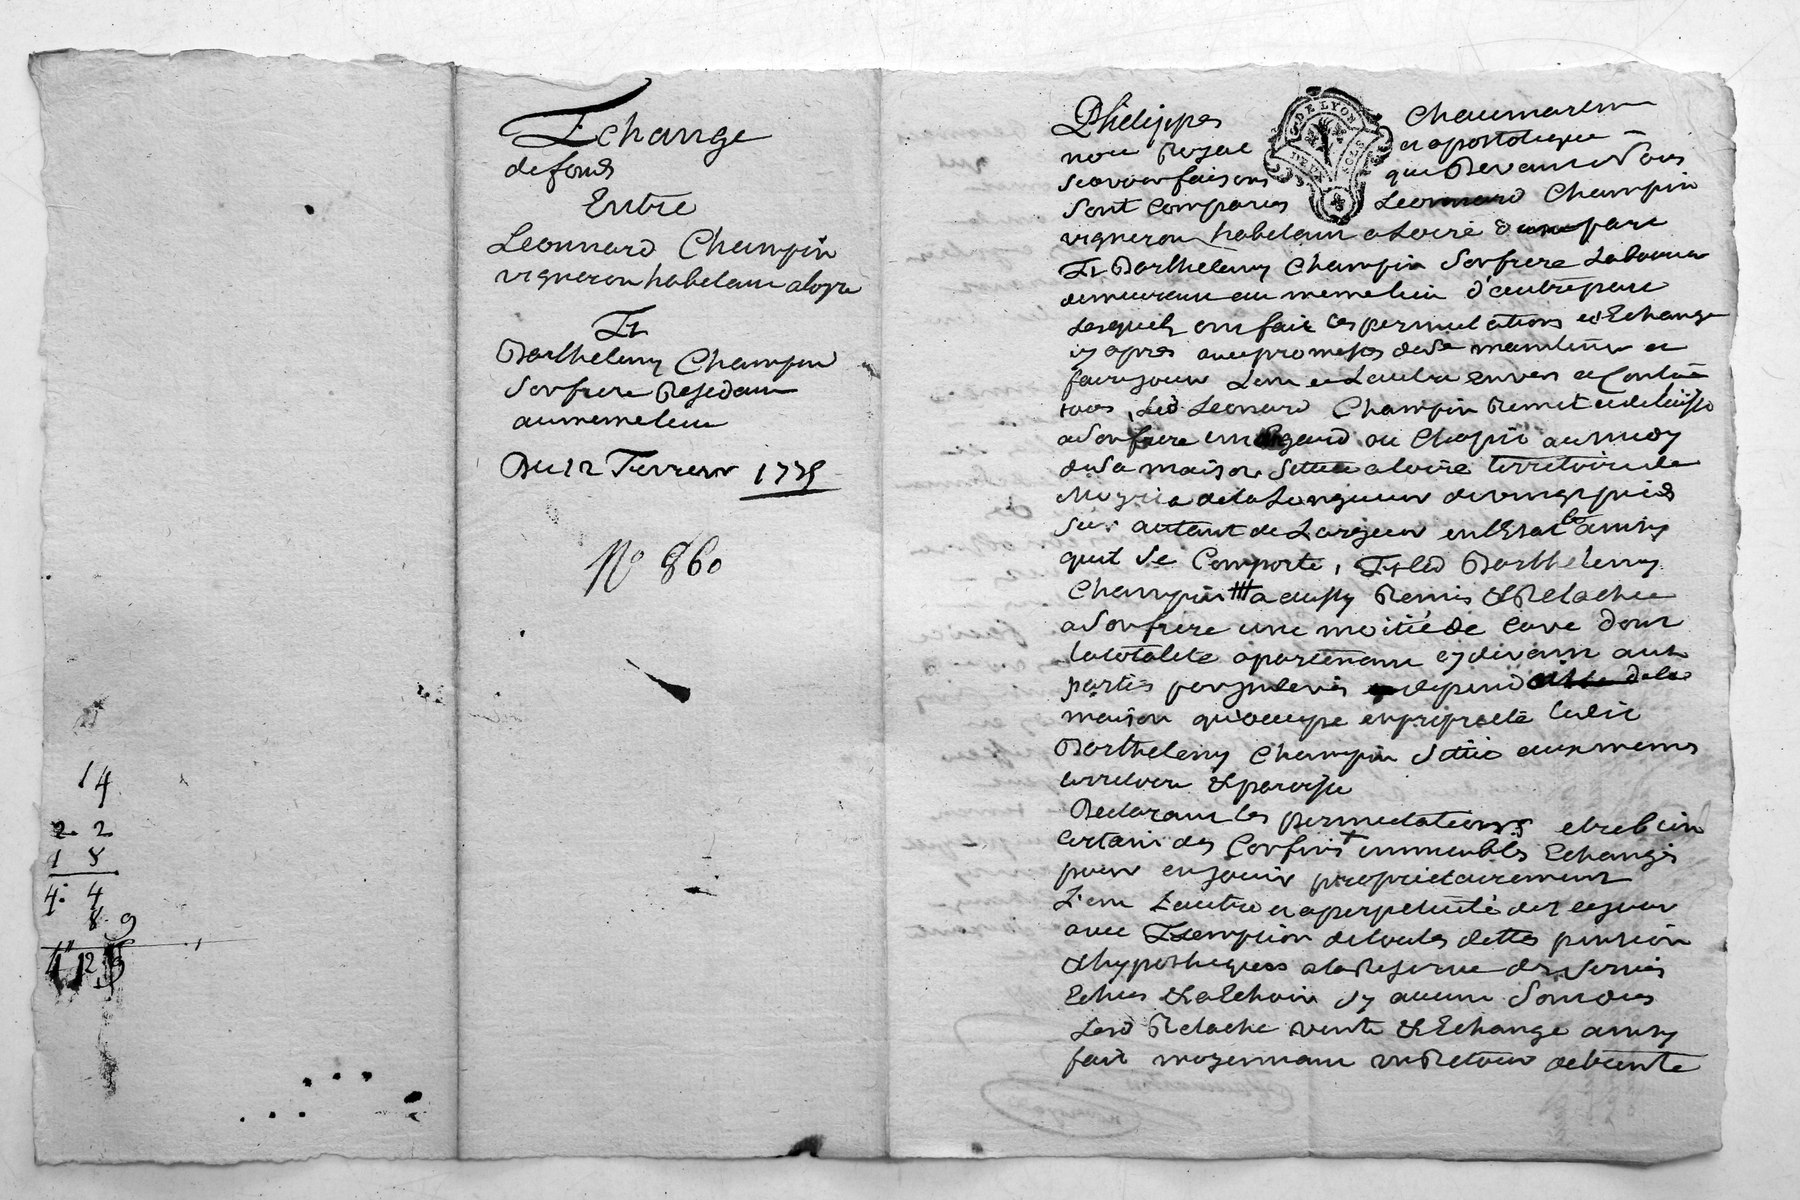 14
2. 2
1 8
4. 4
8 9
Echange
de fond
Entre
Leonnard Champin
vigneron habitant a loyre
Et
Barthelemy Champin
Son frere Residant
au meme lieu
Du 12 Fevrier 1775
N° 860
Philippes Chaumarem
G. DE LYON
SOLS
nore Royal et apostolique
Scavoir faisons que Devant Nous
Sont Comparus Leonnard Champin
vigneron habitant a Loire d'une part
Et Barthelemy Champin Son frere Laboureur
demeurant au meme lieu d'autre part
Lesquels ont fait les permutations et Echange
cy apres avec promesses de se maintenir et
faire jouir L'un et L'autre envers et Contre
tous, Led Leonard Champin Remet et delaisse
a Son frere un ou Chapit au midy
de Sa maison Situee a loire territoire de
de la Longueur de vingt pieds
Sur autant de Largeur en l'Etat et ainsy
quil Se Comporte, Et led Barthelemy
Champin a aussy Remis & Relaché
a Son frere une moitié de Cave dont
la totalité apartenant eydivant aux
partis par Indevis depend de la
maison qu'occupe en proprieté ledit
Barthelemy Champin Sittué aux memes
territoire & paroisse
Declarant les permutations etre bien
Certains des Confins + immeubles Echangés
pour en jouir proprietairement
L'un L'autre et a perpetuité des ce jour
avec Exemption de toutes dettes pension
& hypotheques a la Reserve des Servis
Echus & a Echoir Sy aucun Sont dus
Lesd Relache vente & Echange ainsy
fait moyennant un Retour de trente